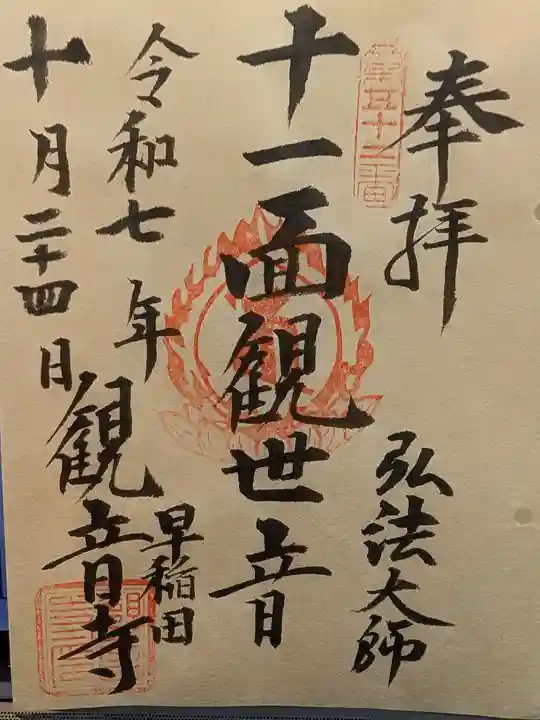 奉拝
第五十二番
弘法大師
十一面観世音
令和七年
十月二十四日
早稲田
観音寺